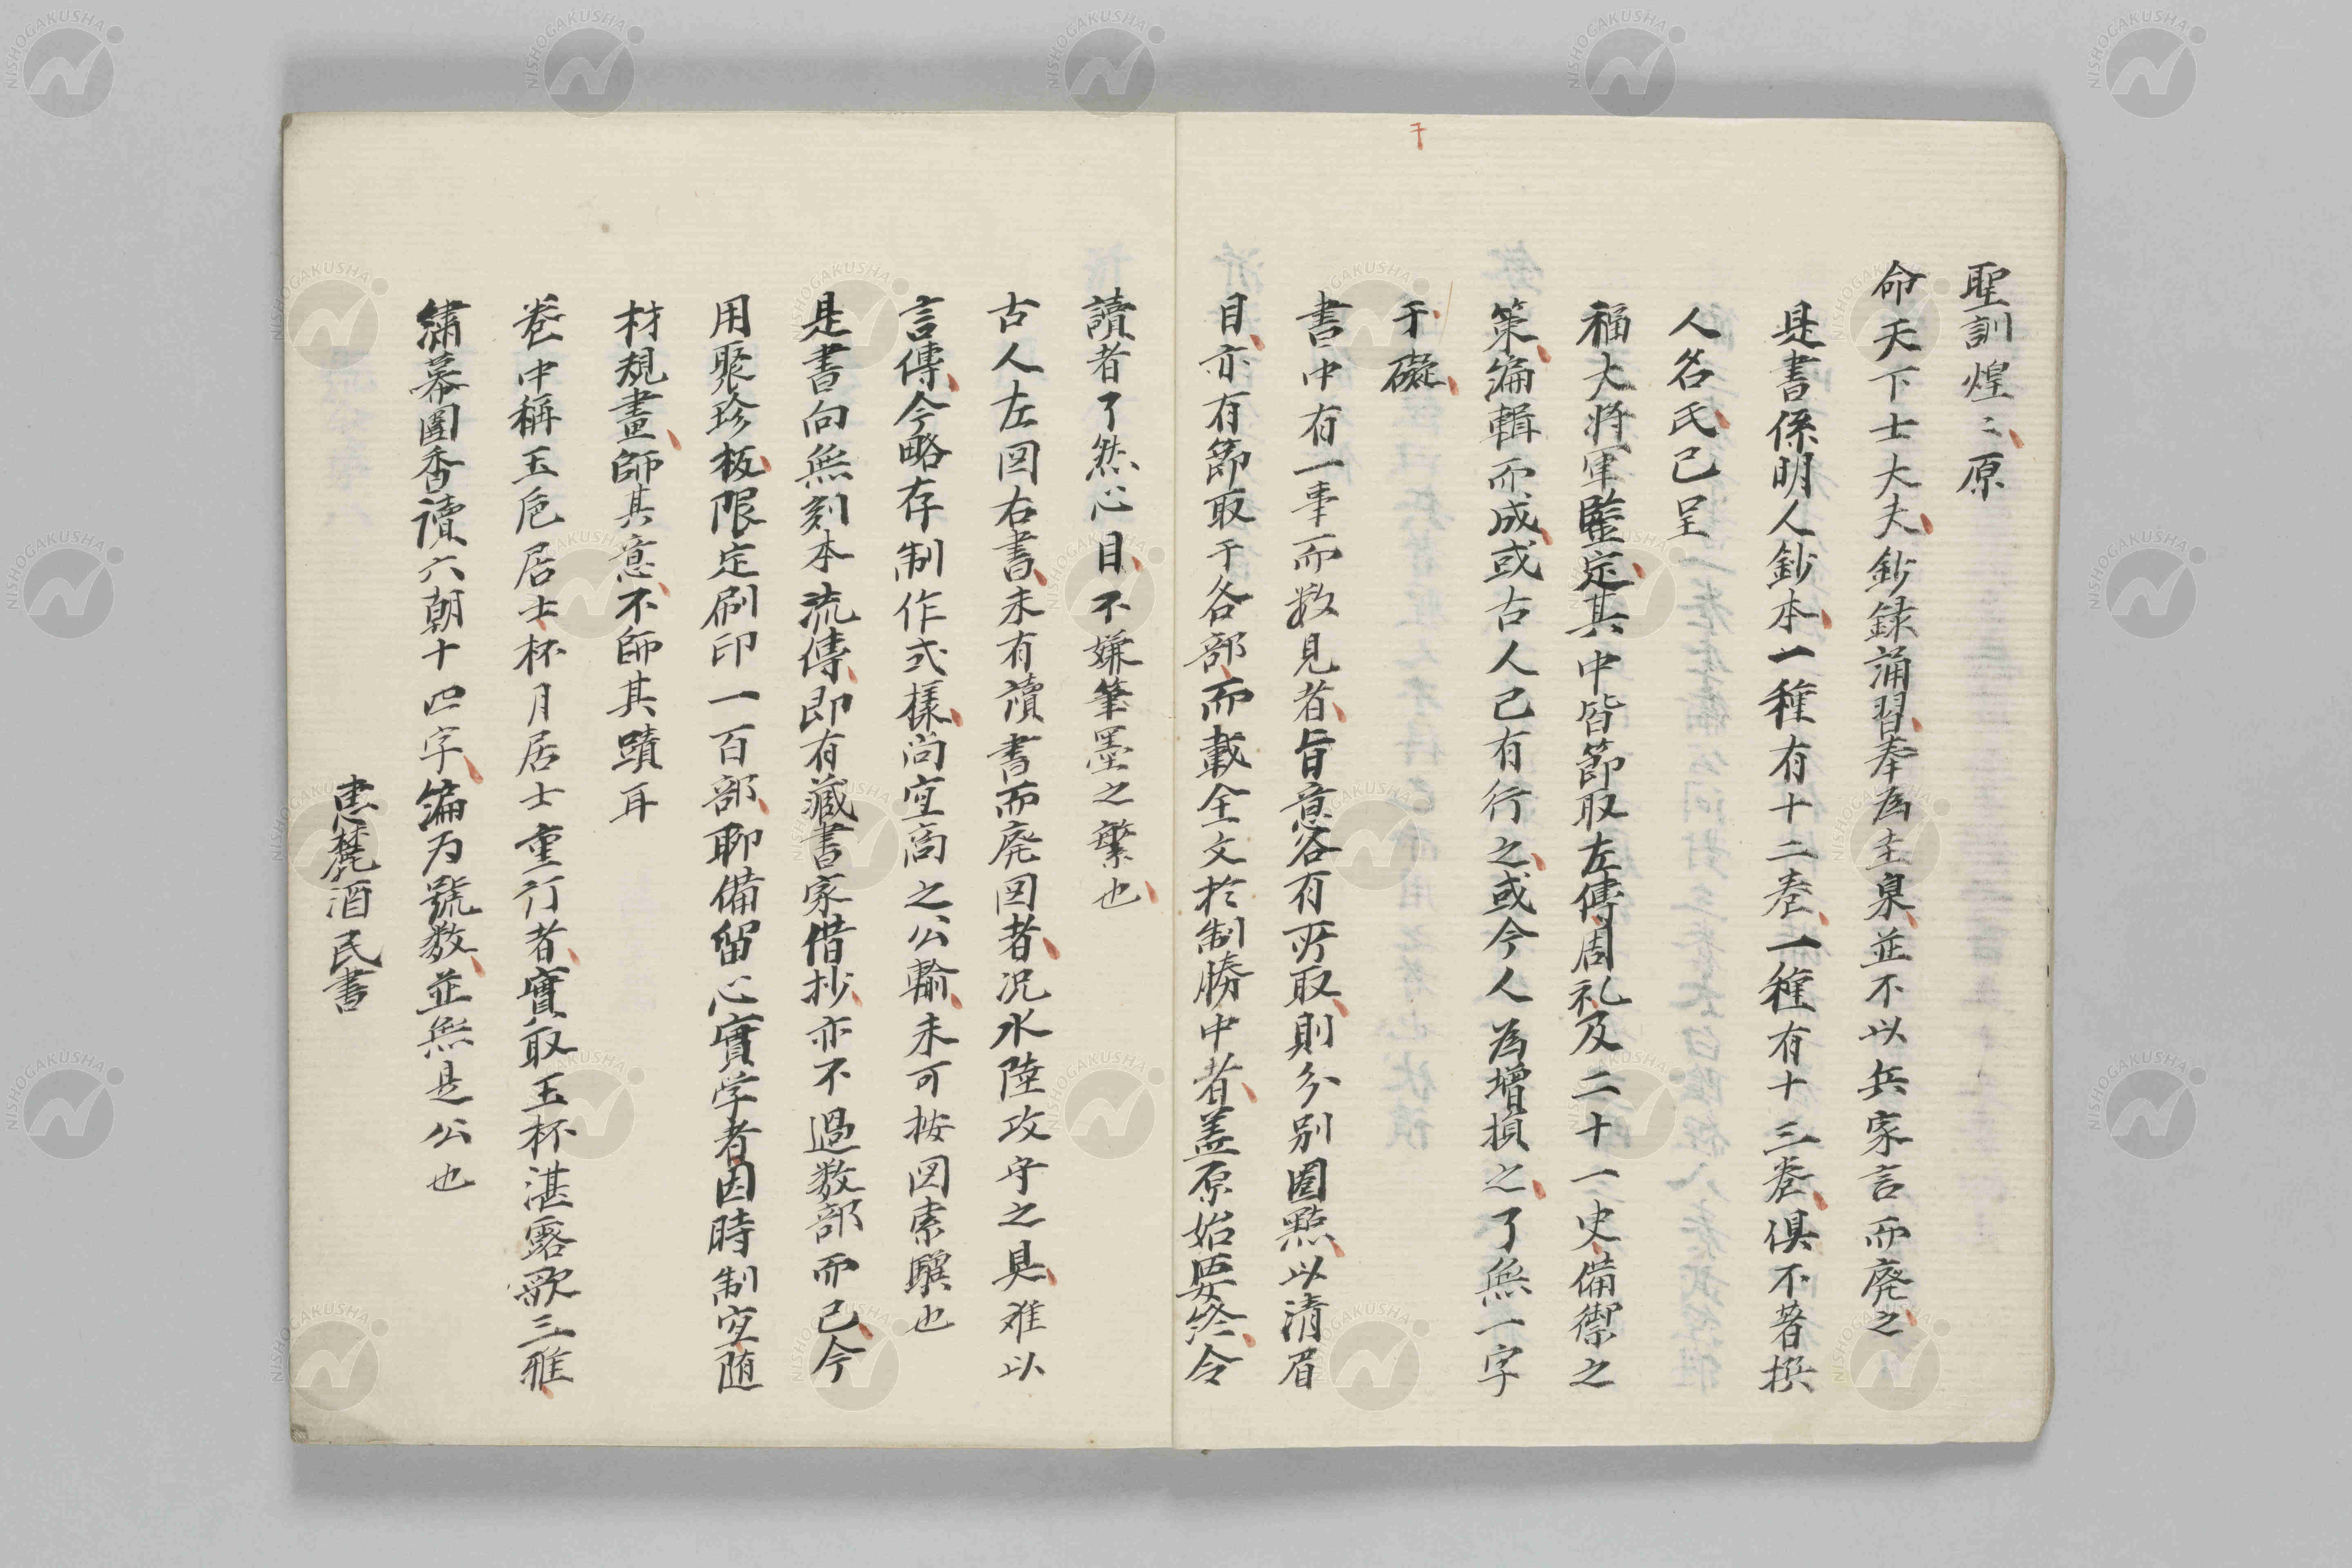 聖訓煌〻原
命天下士大夫鈔録誦習奉為圭臬並不以兵家言而廃之
是書係明人鈔本一種有十二巻一種有十三巻俱不著撰
人名氏已呈
福大将軍鑒定其中皆節取左傳周礼及二十一史備禦之
策編輯而成或古人已有行之或今人為增損之了無一字
于礙
干
書中有一事而数見者旨意各有所取則分別圈點以清眉
目亦有節取于各部而載全文於制勝中者盖原始要終令
讀者了然心目不嫌筆墨之繁也
古人左図右書未有讀書而廃図者况水陸攻守之具難以
言傳今略存制作式樣尚宜商之公輸未可按図索驥也
是書向無刻本流傳即有藏書家借抄亦不過数部而已今
用聚珍板限定刷印一百部聊備留心實学者因時制宜随
材規畫師其意不師其蹟耳
巻中稱玉卮居士杯月居士重订者實取玉杯湛露歌三雅
繡幕圍香讀六朝十四字編为號数並無是公也
恵麓酒民書
NISHOGAKUSHA